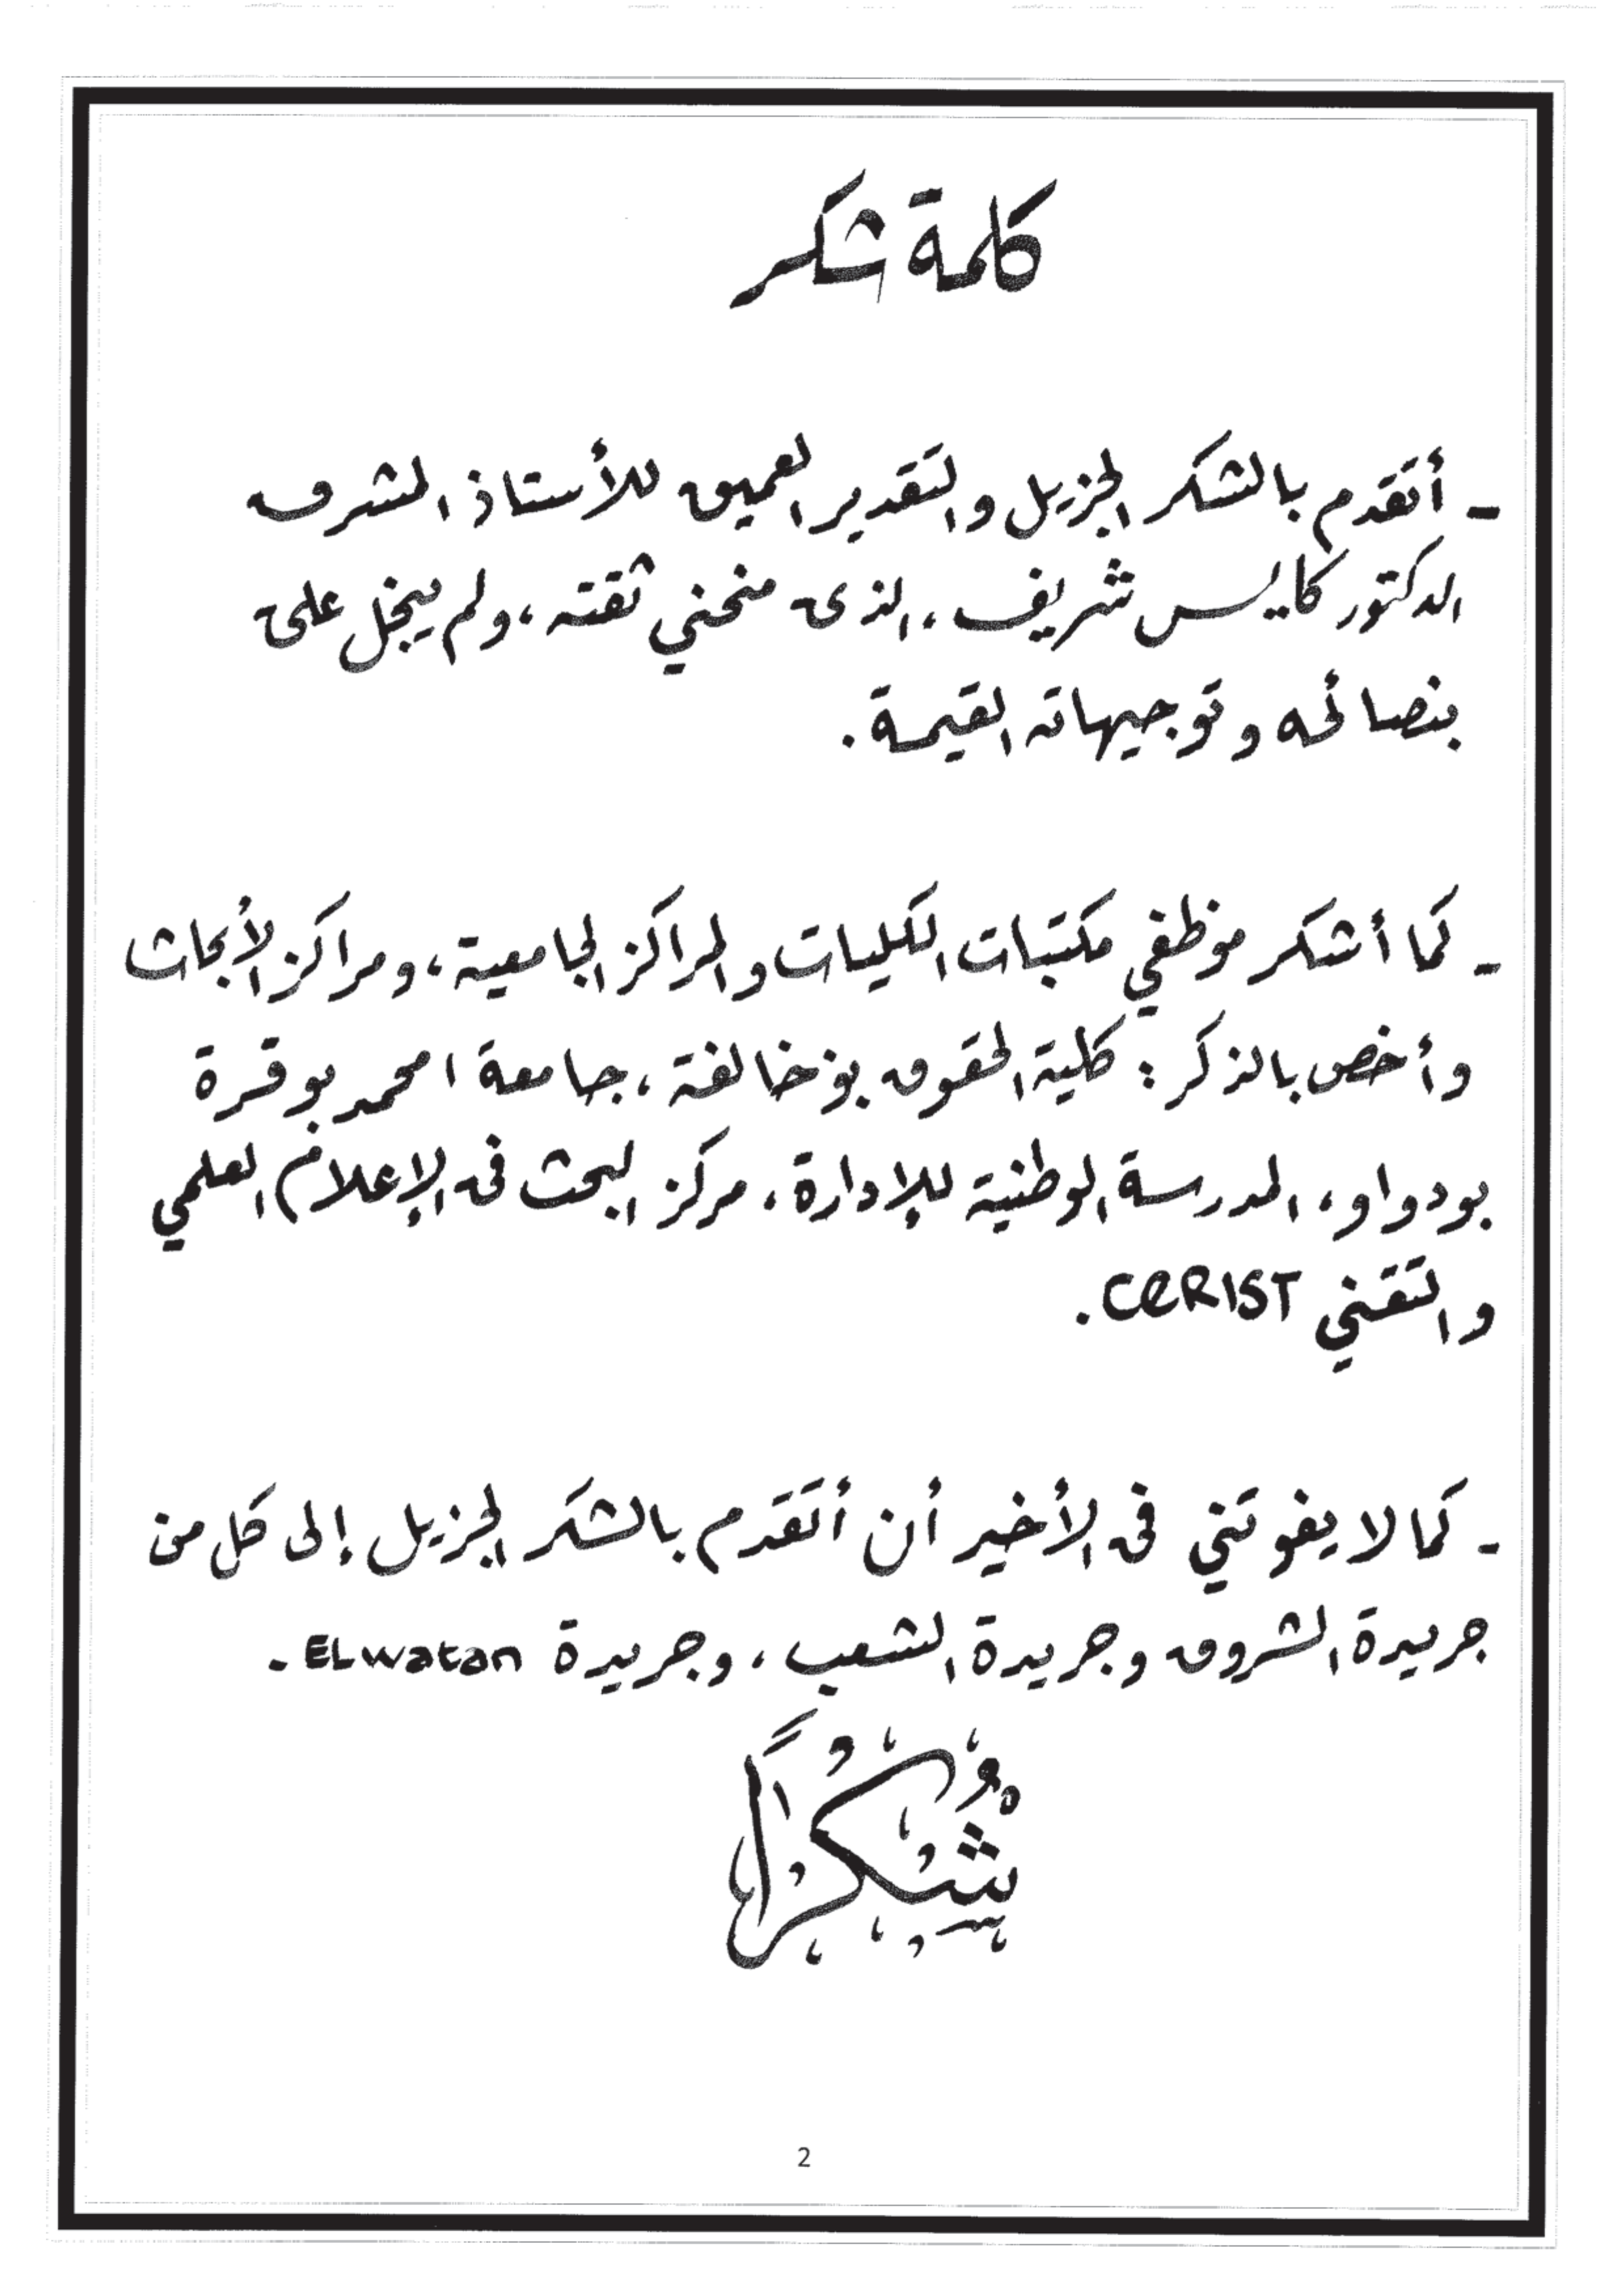 كلمة شكر
- أتقدم بالشكر الجزيل والتقدير العميق للأستاذ المشرف
الدكتور كايس شريف، الذى منحني ثقته، ولم يبخل على
بنصائحه وتوجيهاته القيمة.
- كما أشكر موظفي مكتبات الكليات والمراكز الجامعية، ومراكز الأبحاث
وأخص بالذكر: كلية الحقوق بوخالفة، جامعة امحمد بوقرة
بودواو، المدرسة الوطنية للإدارة، مركز البحث فى الإعلام العلمي
والتقني CeRIST.
- كما لا يفوتني فى الأخير أن أتقدم بالشكر الجزيل إلى كل من
جريدة الشروق وجريدة الشعب، وجريدة ELwatan.
شُكْرًا
2